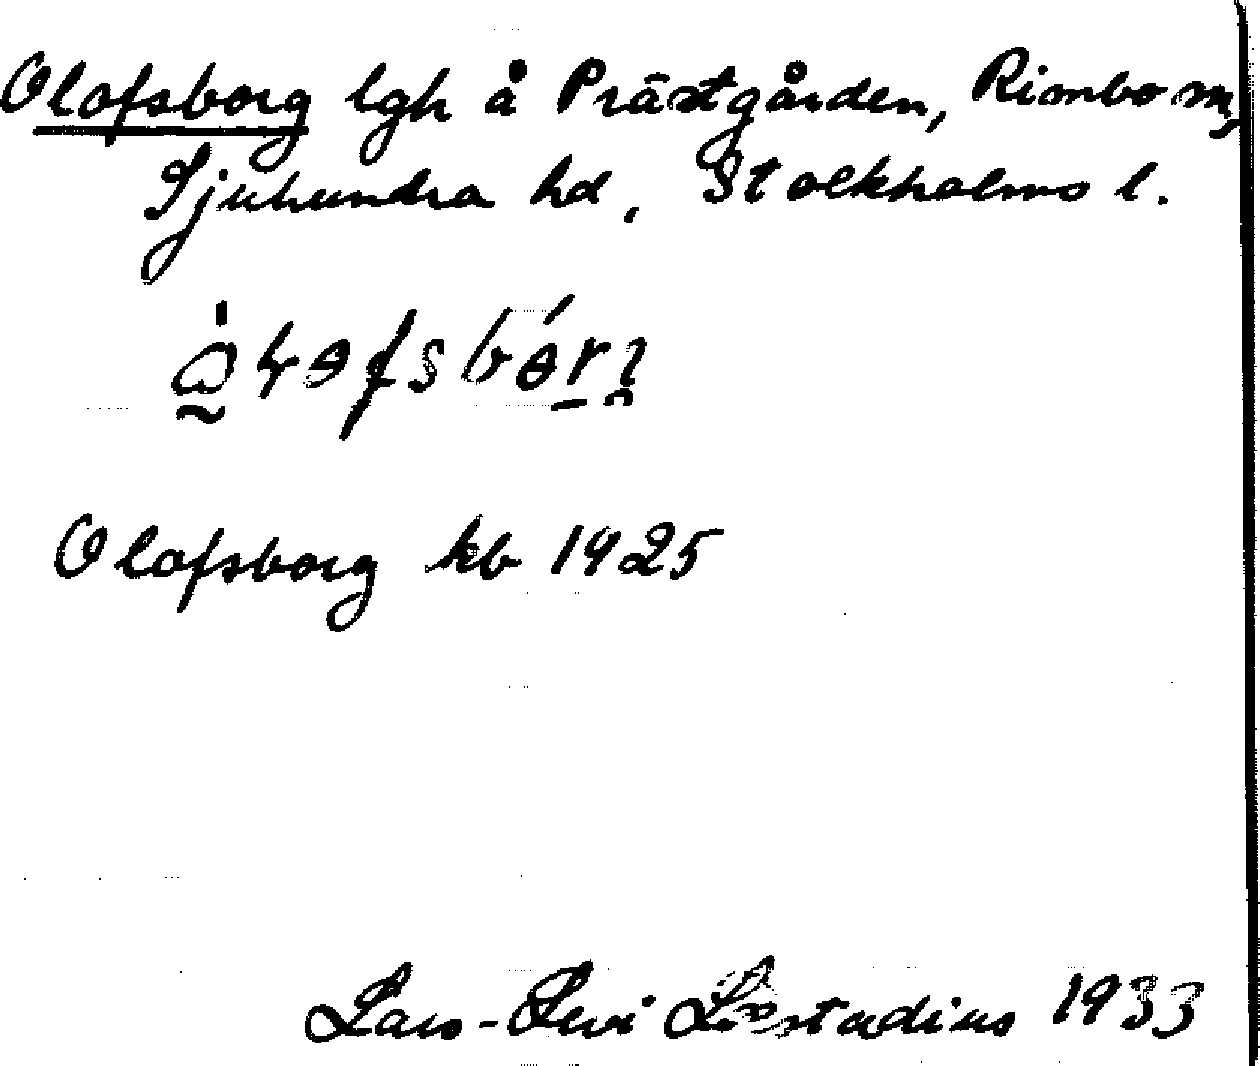 Olofsborg lgh å Prästgården, Rimbo sn,
Sjuhundra hd, Stockholms l.
Olofsborg kb 1925
Lars-Levi Læstadius 1933